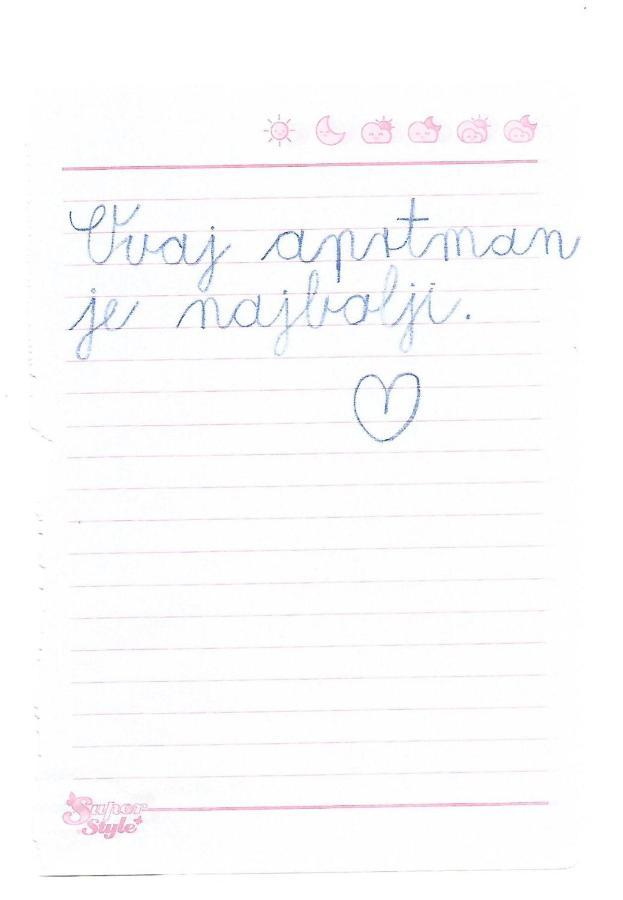 Ovaj aprtman
je najbolji.
Super
Style